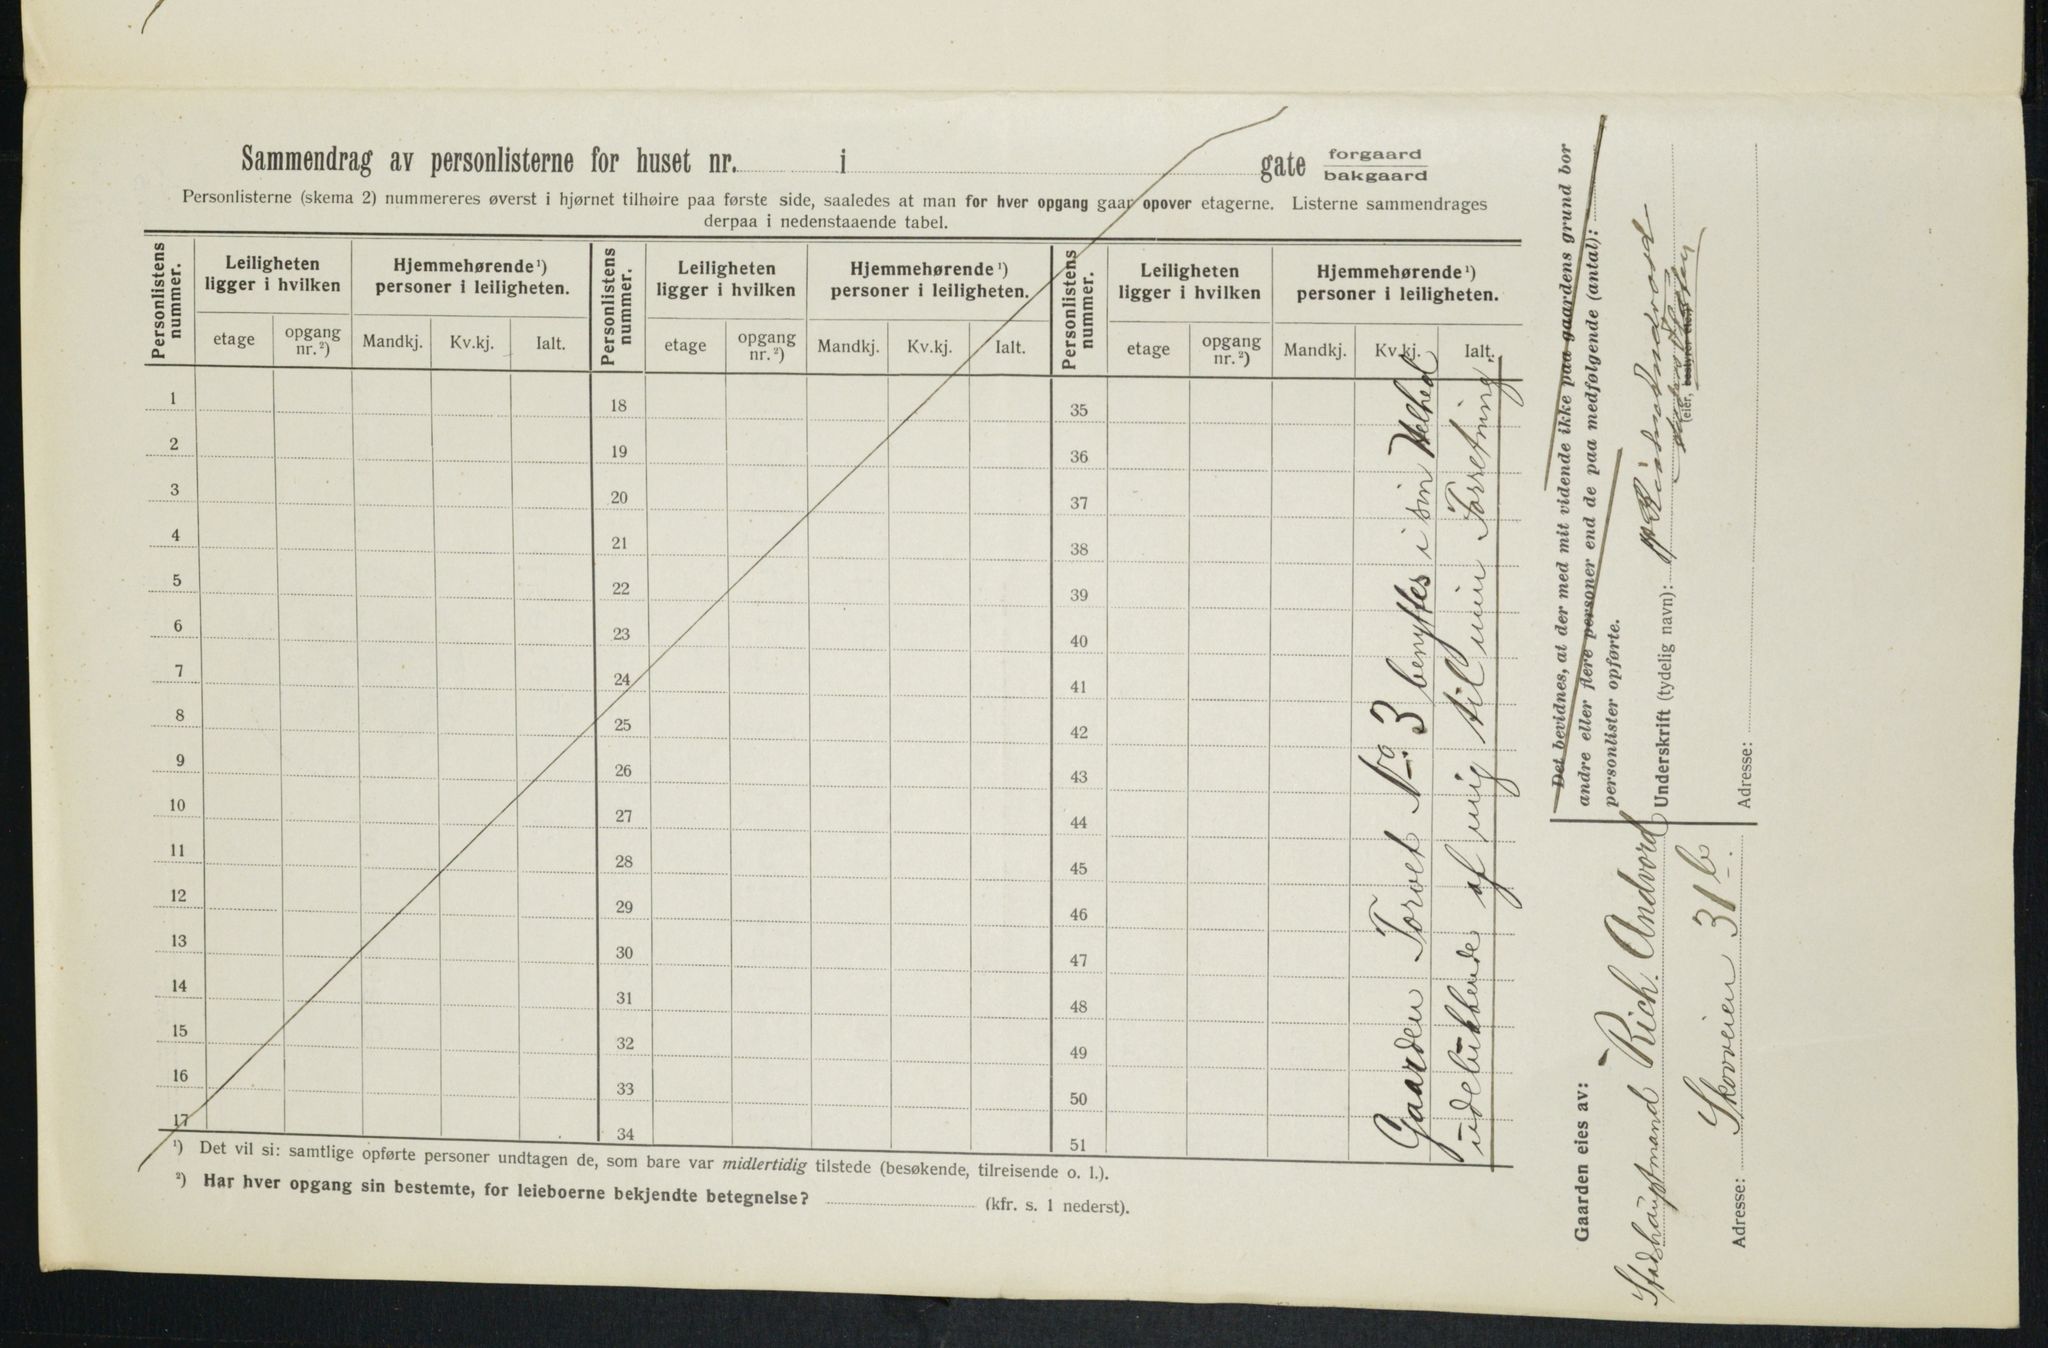 Sammendrag av personlisterne for huset nr. i gate forgaard
bakgaard
Personlisterne (skema 2) nummereres øverst i hjørnet tilhøire paa første side, saaledes at man for hver opgang gaar opover etagerne. Listerne sammendrages
derpaa i nedenstaaende tabel.
Personlistens nummer. Leiligheten ligger i hvilken Hjemmehørende ¹) personer i leiligheten. Personlistens nummer. Leiligheten ligger i hvilken Hjemmehørende ¹) personer i leiligheten. Personlistens nummer. Leiligheten ligger i hvilken Hjemmehørende ¹) personer i leiligheten.
etage opgang nr. ²) Mandkj. Kv.kj. Ialt. etage opgang nr. ²) Mandkj. Kv.kj. Ialt. etage opgang nr. ²) Mandkj. Kv.kj. Ialt.
1 18 35
2 19 36
3 20 37
4 21 38
5 22 39
6 23 40
7 24 41
8 25 42
9 26 43
10 27 44
11 28 45
12 29 46
13 30 47
14 31 48
15 32 49
16 33 50
17 34 51
Gaarden Torvet No 3 benyttes i sin Helhed
udelukkende af mig til min Forretning.
¹) Det vil si: samtlige opførte personer undtagen de, som bare var midlertidig tilstede (besøkende, tilreisende o. l.).
²) Har hver opgang sin bestemte, for leieboerne bekjendte betegnelse? (kfr. s. 1 nederst).
Det bevidnes, at der med mit vidende ikke paa gaardens grund bor
andre eller flere personer end de paa medfølgende (antal):
personlister opførte.
Underskrift (tydelig navn): Richard Andvord
(eier, bestyrer etc.)
Adresse:
Gaarden eies av:
Stadshauptmand Rich. Andvord
Adresse: Skovveien 31 b.